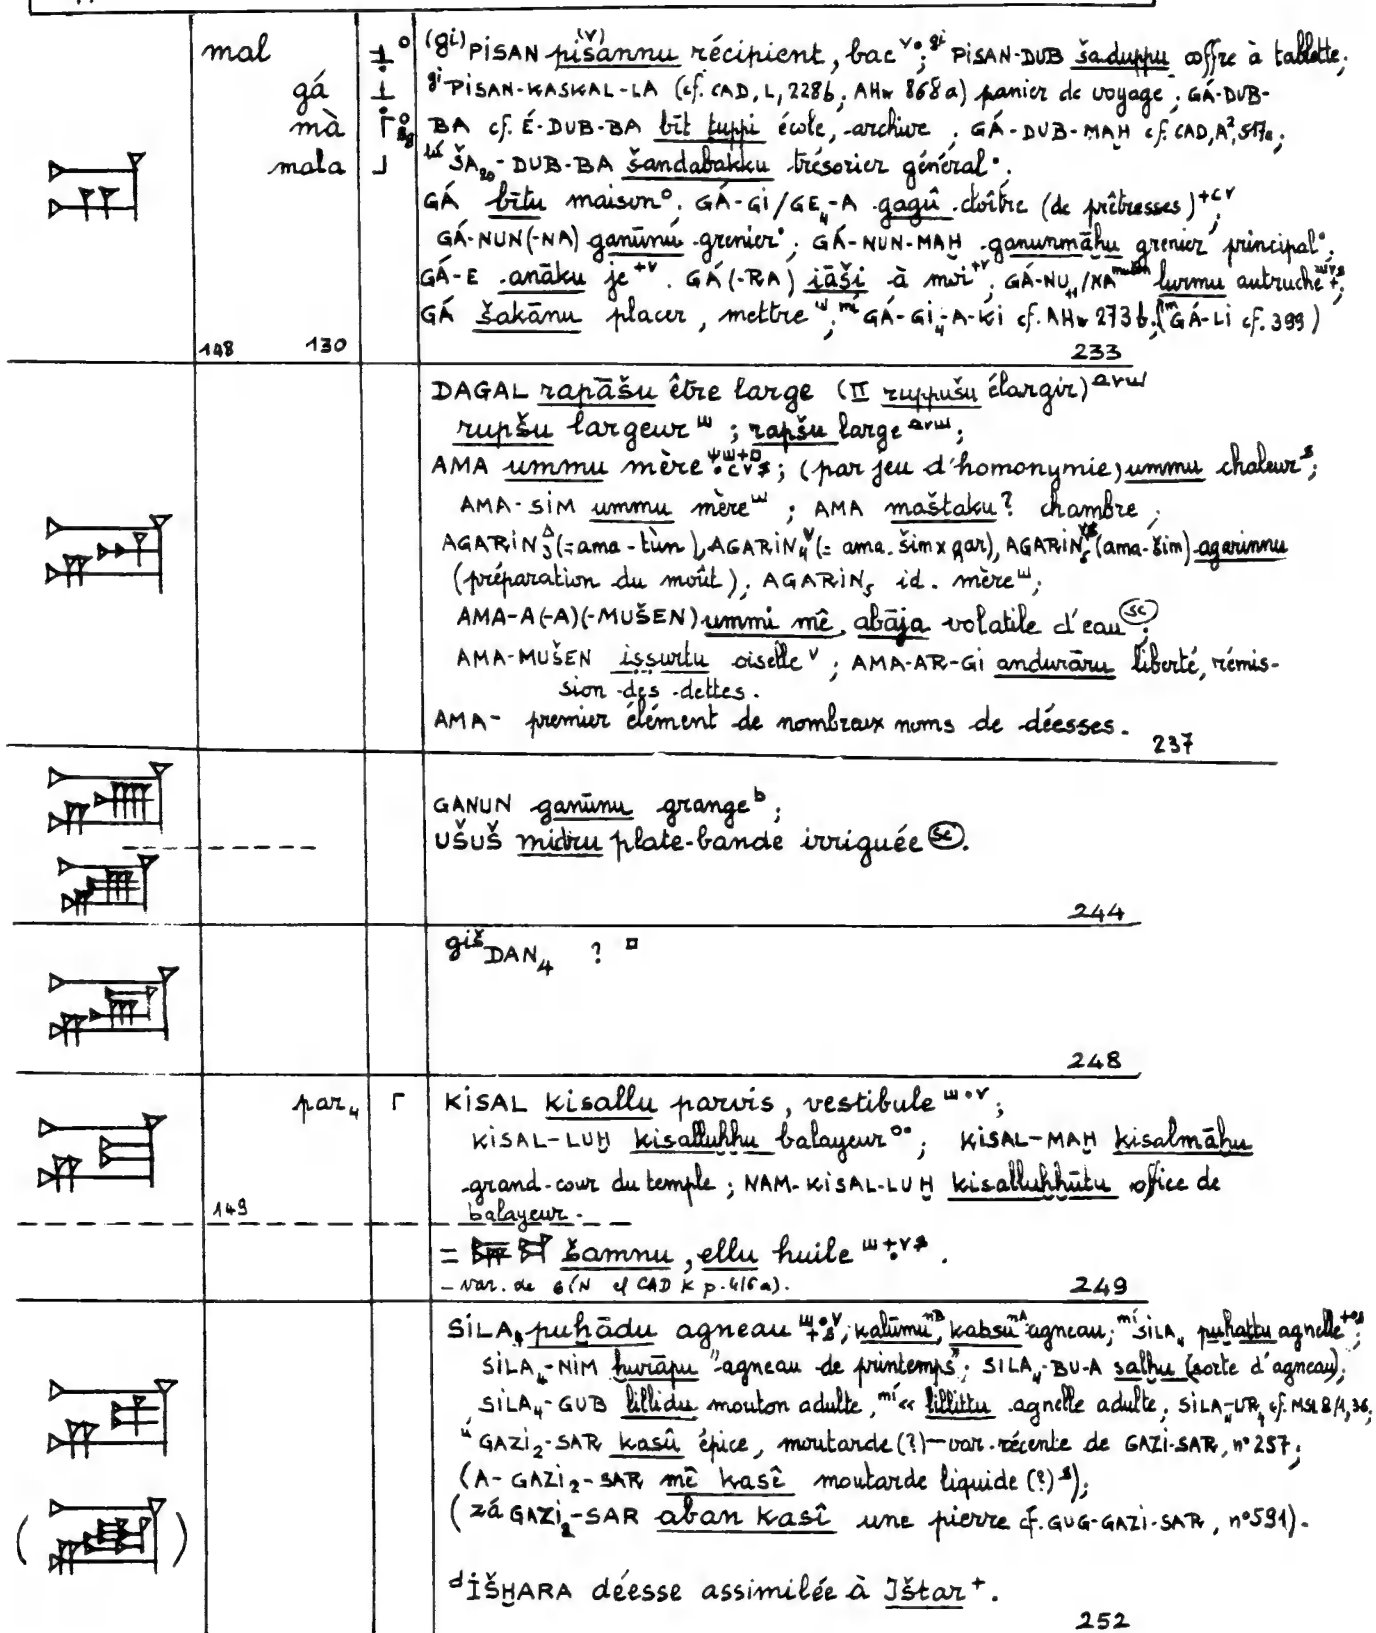 mal (gi) PISAN pisannu récipient, bac; gi PISAN-DUB šaduppu coffre à tablette;
gá gi PISAN-KASKAL-LA (cf. CAD, L, 228b; AHw 868a) panier de voyage; GÁ-DUB-
mà BA cf. É-DUB-BA bīt ṭuppi école, archive; GÁ-DUB-MAḪ cf. CAD, A²,
mala lú ŠA₂₀-DUB-BA šandabakku trésorier général.
GÁ bītu maison; GÁ-GI/GE₄-A gagû cloître (de prêtresses);
GÁ-NUN(-NA) ganūnu grenier; GÁ-NUN-MAḪ ganunmāḫu grenier principal;
GÁ-E anāku je. GÁ(-RA) iāši à moi; GÁ-NU₁₁/NA mušen lurmu autruche;
GÁ šakānu placer, mettre; mí GÁ-GI₄-A-KI cf. AHw 273b. (GÁ-LI cf. 399)
148 130 233
DAGAL rapāšu être large (II ruppušu élargir)
rupšu largeur; rapšu large;
AMA ummu mère; (par jeu d'homonymie) ummu chaleur;
AMA-SIM ummu mère; AMA maštaku? chambre;
AGARIN₃ (= ama-tùn), AGARIN₄ (= ama. šim x gar), AGARIN₅ (ama-šim) agarinnu
(préparation du moût); AGARIN₅ id. mère;
AMA-A(-A)(-MUŠEN) ummi mê, abāja volatile d'eau (sc);
AMA-MUŠEN iṣṣurtu oiselle v; AMA-AR-GI andurāru liberté, rémis-
sion des dettes.
AMA- premier élément de nombreux noms de déesses.
237
GANUN ganūnu grange b;
UŠUŠ midru plate-bande irriguée (sc).
244
giš DAN₄ ?
248
par₄ KISAL kisallu parvis, vestibule;
KISAL-LUḪ kisalluḫḫu balayeur; KISAL-MAḪ kisalmāḫu
grand-cour du temple; NAM-KISAL-LUḪ kisalluḫḫūtu office de
149 balayeur.
= šamnu, ellu huile.
– var. de cf CAD K p. 416a). 249
SILA₄ puḫādu agneau; kalūmu, kabsu agneau; mí SILA₄ puḫattu agnelle;
SILA₄-NIM ḫurāpu "agneau de printemps"; SILA₄-BU-A salḫu (sorte d'agneau);
SILA₄-GUB lillidu mouton adulte, mí « lillittu agnelle adulte; SILA₄-UR₄ cf. MSL 8/1, 36;
ú GAZI₂-SAR kasû épice, moutarde (?) – var. récente de GAZI-SAR, n° 257;
(A-GAZI₂-SAR mê kasî moutarde liquide (?));
(zá GAZI₂-SAR aban kasî une pierre cf. GUG-GAZI-SAR, n° 591).
d IŠḪARA déesse assimilée à Ištar +.
252